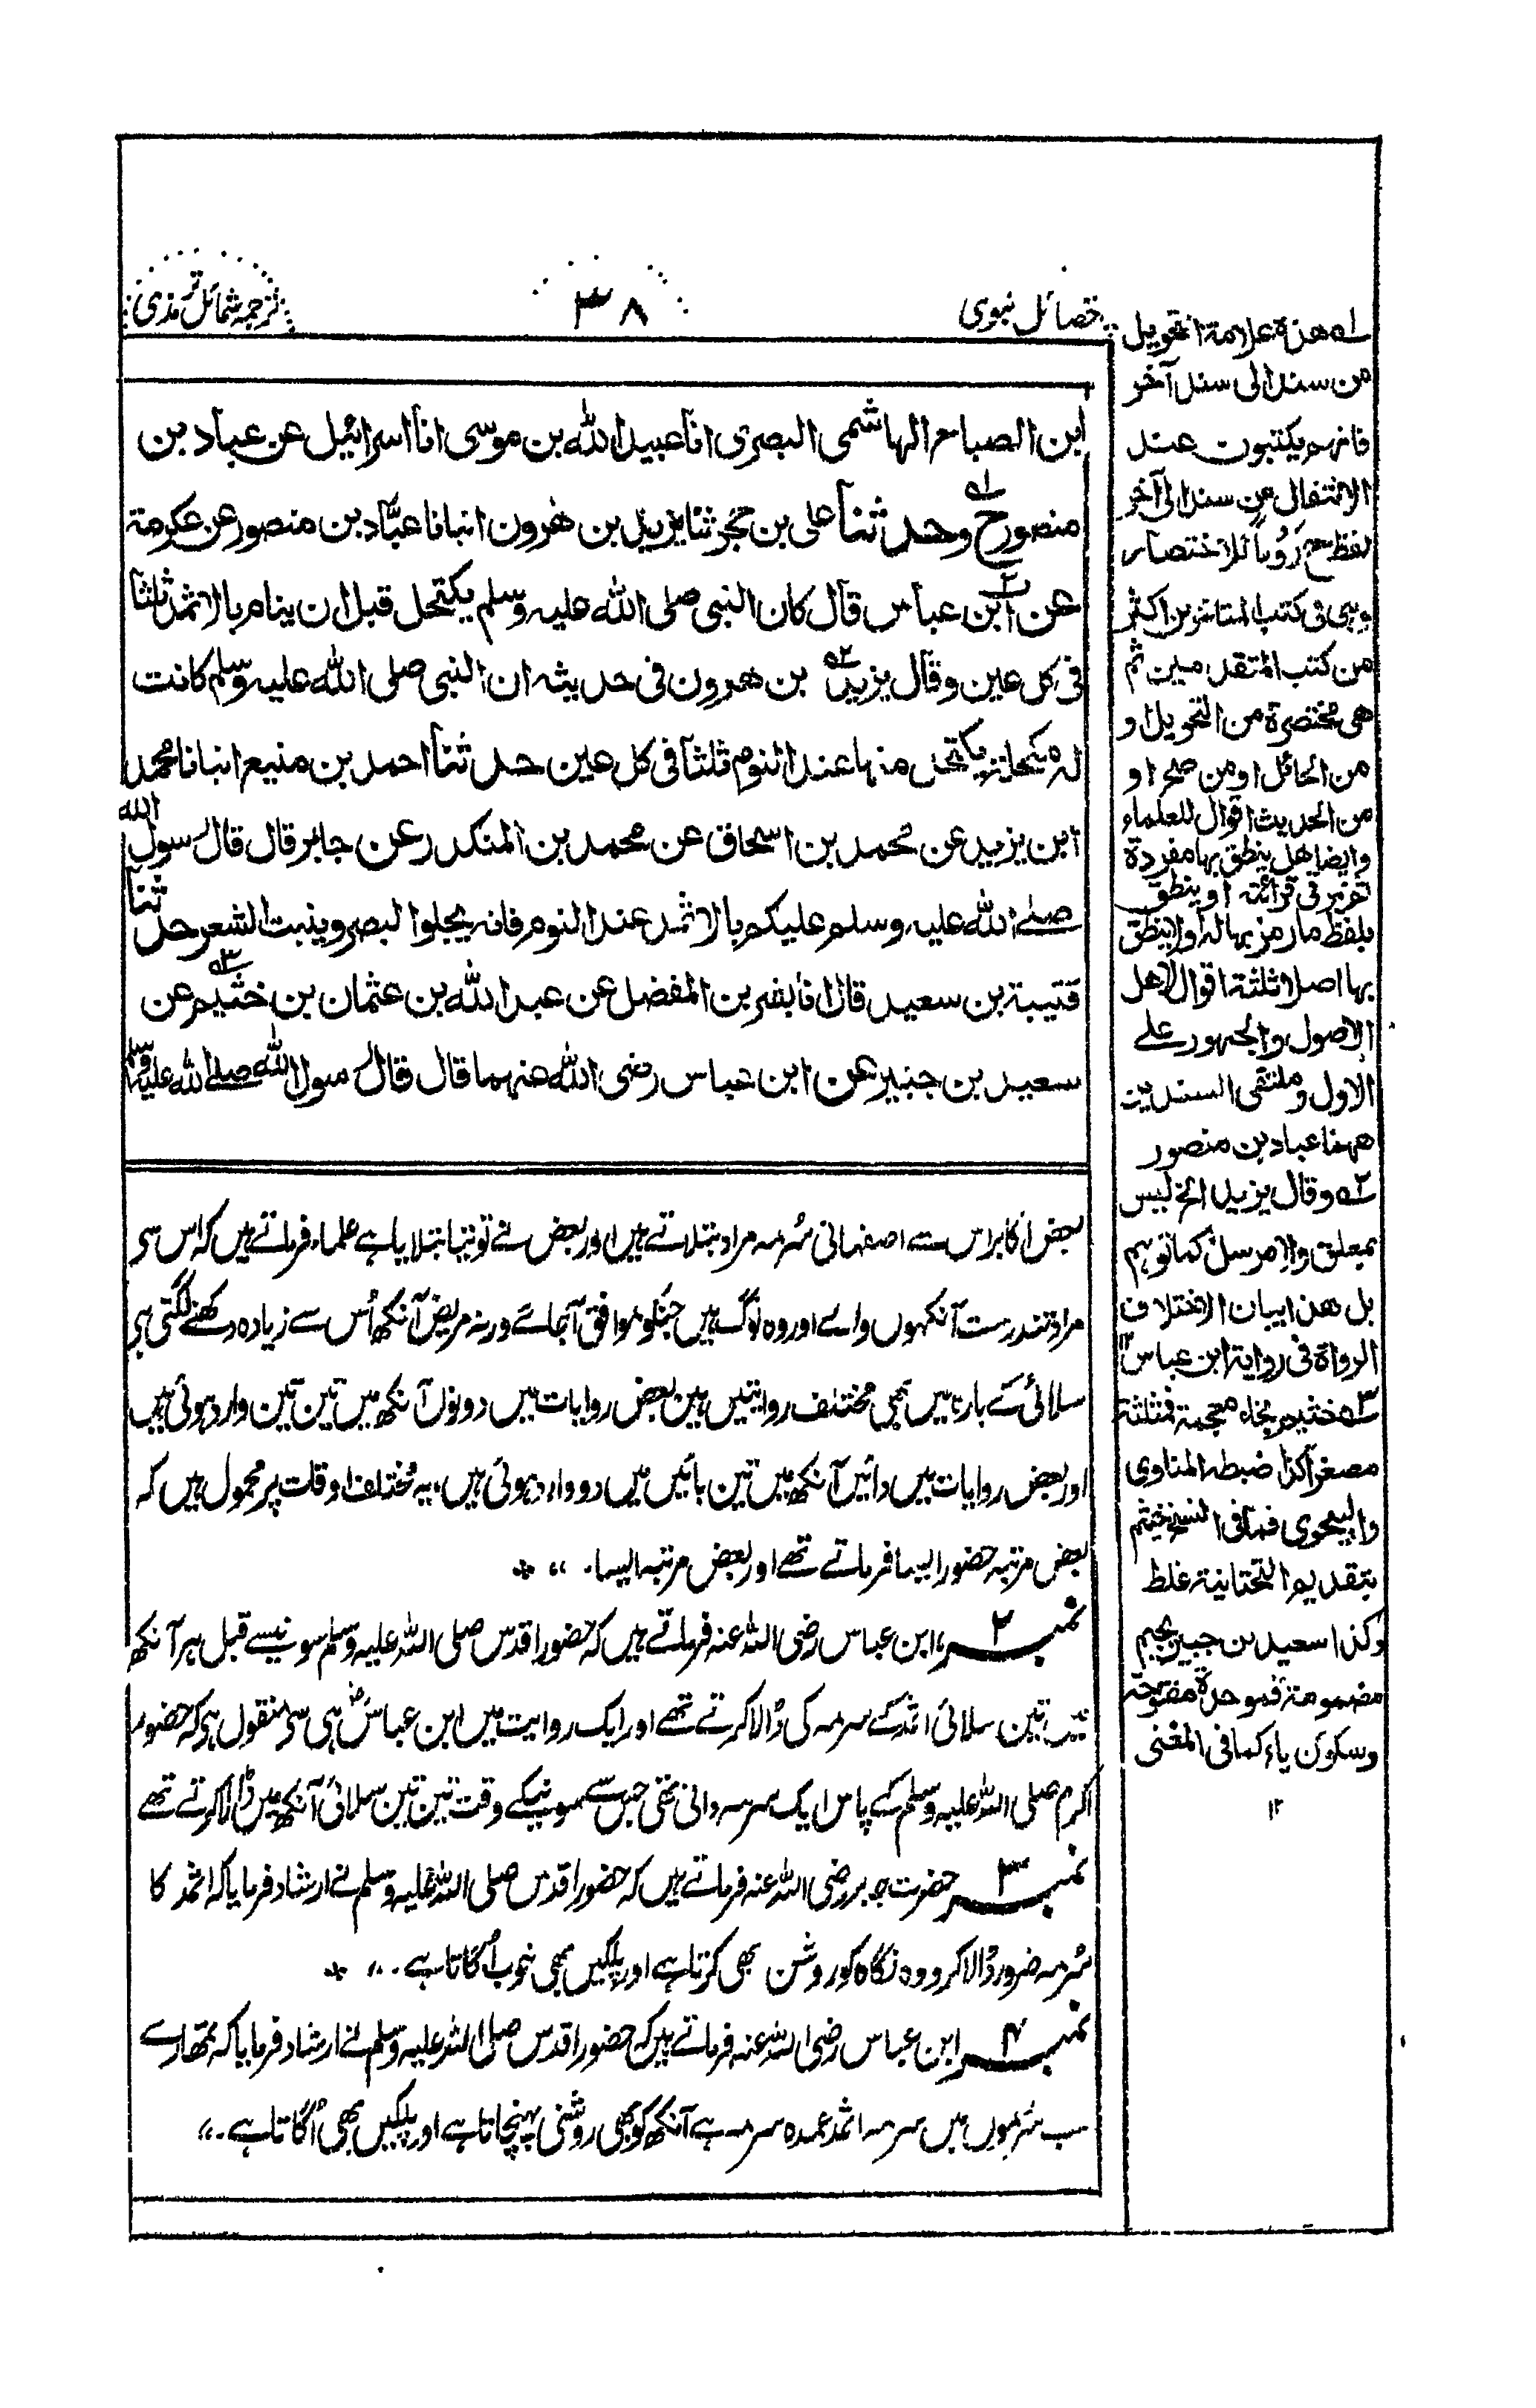 خصائل نبوی
۳۸
ترجمہ شمائل ترمذی
ابن الصباح الہاشمی البصری انا عبید اللہ بن موسی انا اسرائیل عن عباد بن
منصور ح وحدثنا علی بن حجر ثنا یزید بن ھٰرون انبانا عبّاد بن منصور عن عکرمۃ
عن ابن عباس قال کان النبی صلی اللہ علیہ وسلم یکتحل قبل ان ینام بالاثمد ثلثا
فی کل عین وقال یزید بن ھرون فی حدیثہ ان النبی صلی اللہ علیہ وسلم کانت
لہ مکحلۃ یکتحل منہا عند النوم ثلثا فی کل عین حدثنا احمد بن منیع انبانا محمد
ابن یزید عن محمد بن اسحاق عن محمد بن المنکدر عن جابر قال قال رسول اللہ
صلے اللہ علیہ وسلم علیکم بالاثمد عند النوم فانہ یجلوا البصر وینبت الشعر حدثنا
قتیبۃ بن سعید قال انا بشر بن المفضل عن عبد اللہ بن عثمان بن خثیم عن
سعید بن جبیر عن ابن عباس رضی اللہ عنہما قال قال رسول اللہ صلے اللہ علیہ وسلم
بعض اکابر اس سے اصفہانی سُرمہ مراد بتلاتے ہیں اور بعض نے توتیا بتلایا ہے علماء فرماتے ہیں کہ اس سی
مراد تندرست آنکھوں والے اور وہ لوگ ہیں جنکو موافق آجاے ورنہ مریض آنکھ اُس سے زیادہ دکھنے لگتی ہی
سلائی کے بارہ میں بھی مختلف روایتیں ہیں بعض روایات میں دونوں آنکھ میں تین تین وارد ہوئی ہیں
اور بعض روایات میں دائیں آنکھ میں تین بائیں میں دو وارد ہوئی ہیں، یہ مختلف اوقات پر محمول ہیں کہ
بعض مرتبہ حضور ایسا فرماتے تھے اور بعض مرتبہ ایسا۔
نمبر ۲ ابن عباس رضی اللہ عنہ فرماتے ہیں کہ حضور اقدس صلی اللہ علیہ وسلم سونیسے قبل ہر آنکھ
میں تین سلائی اثمد کے سرمہ کی ڈالا کرتے تھے اور ایک روایت میں ابن عباسؓ ہی سی منقول ہی کہ حضور
اکرم صلی اللہ علیہ وسلم کے پاس ایک سرمہ دانی تھی جس سے سونیکے وقت تین تین سلائی آنکھ میں ڈالا کرتے تھے
نمبر ۳ حضرت جابر رضی اللہ عنہ فرماتے ہیں کہ حضور اقدس صلی اللہ علیہ وسلم نے ارشاد فرمایا کہ اثمد کا
سُرمہ ضرور ڈالا کرو وہ نگاہ کو روشن بھی کرتا ہے اور پلکیں بھی خوب اُگاتا ہے۔
نمبر ۴ ابن عباس رضی اللہ عنہ فرماتے ہیں کہ حضور اقدس صلی اللہ علیہ وسلم نے ارشاد فرمایا کہ تمھارے
سب سُرموں میں سرمہ اثمد عمدہ سرمہ ہے آنکھ کو بھی روشنی پہنچاتا ہے اور پلکیں بھی اُگاتا ہے۔
لہ ھذہ علامۃ التحویل
من سند الی سند آخر
فانہم یکتبون عند
الانتقال من سند الی آخر
لفظ ح رَوْماً للاختصار
وہی فی کتب المتاخرین اکثر
من کتب المتقدمین ثم
ھی مختصرۃ من التحویل او
من الحائل او من صح او
من الحدیث اقوال للعلماء
وایضا ھل ینطق بہا مفردۃ
ثم یمر فی قرائتہ او ینطق
بلفظ ما رمز بہا لہ او لا ینطق
بہا اصلا ثلثۃ اقوال لاھل
الاصول والجمہور علے
الاول وملتقی السندین
ھہنا عباد بن منصور
۲ہ وقال یزید الخ لیس
بمعلق ولا مرسل کما توہم
بل ھذا بیان الاختلاف
الرواۃ فی روایۃ ابن عباس ۱۲
۳ہ خثیم بخاء معجمۃ فمثلثۃ
مصغرا کذا ضبطہ المناوی
والبیجوری فما فی النسخ خیثم
بتقدیم التحتانیۃ غلط
وکذا سعید بن جبیر بجیم
مضمومۃ فموحدۃ مفتوحۃ
وسکون یاء کما فی المغنی
۱۲